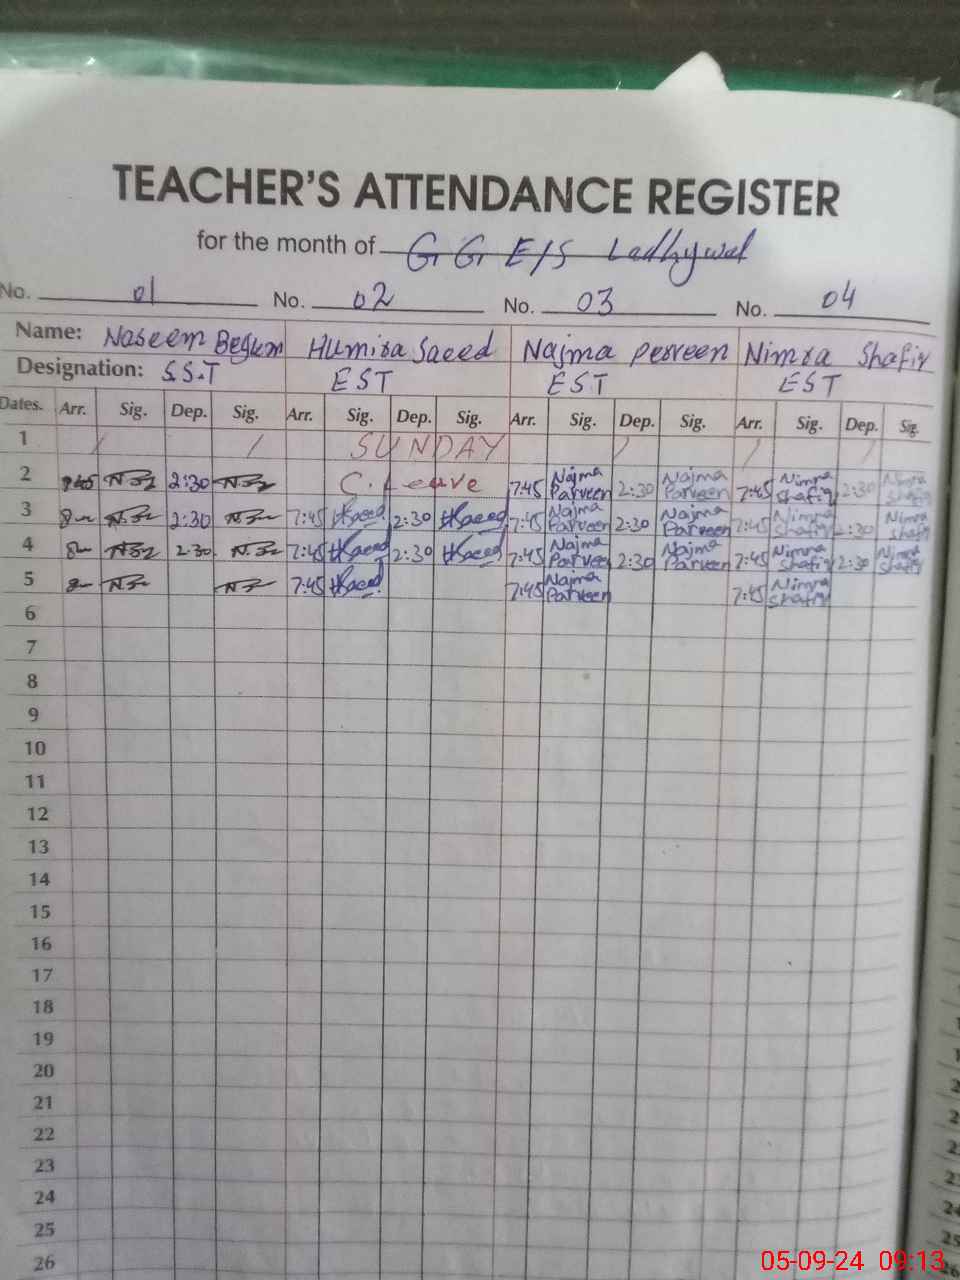 TEACHER'S ATTENDANCE REGISTER
for the month of G G E/S Ladhywal
No. 01 No. 02 No. 03 No. 04
Name: Naseem Begum Humira Saeed Najma perveen Nimra Shafiq
Designation: S.S.T EST EST EST
Dates. Arr. Sig. Dep. Sig. Arr. Sig. Dep. Sig. Arr. Sig. Dep. Sig. Arr. Sig. Dep. Sig.
1 SUNDAY
2 7:45 2:30 C. Leave 7:45 Najma Parveen 2:30 Najma Parveen 7:45 Nimra Shafiq 2:30 Nimra Shafiq
3 2:30 7:45 HSaeed 2:30 HSaeed 7:45 Najma Parveen 2:30 Najma Parveen 7:45 Nimra Shafiq 2:30 Nimra Shafiq
4 2:30 7:45 HSaeed 2:30 HSaeed 7:45 Najma Parveen 2:30 Najma Parveen 7:45 Nimra Shafiq 2:30 Nimra Shafiq
5 7:45 HSaeed 7:45 Najma Parveen 7:45 Nimra Shafiq
6
7
8
9
10
11
12
13
14
15
16
17
18
19
20
21
22
23
24
25
26
05-09-24 09:13